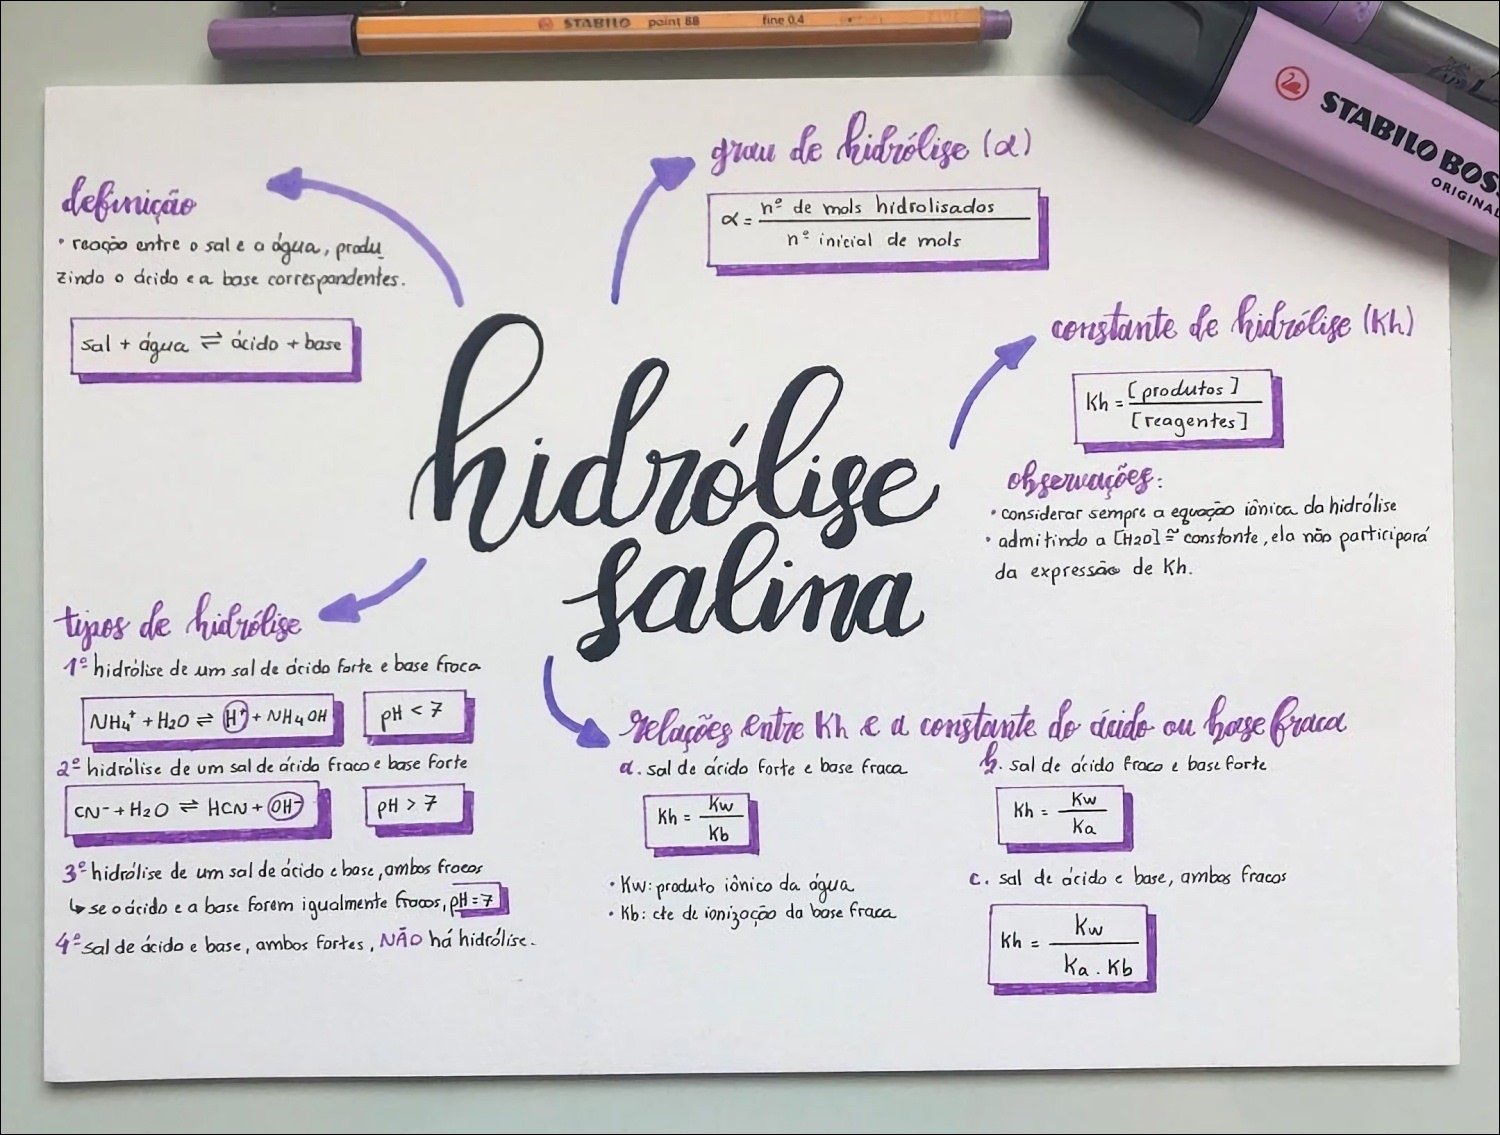 STABILO point 88 fine 0,4
STABILO BOSS
ORIGINAL
hidrólise
salina
definição
• reação entre o sal e a água, produ_
zindo o ácido e a base correspondentes.
sal + água ⇌ ácido + base
grau de hidrólise (α)
α = nº de mols hidrolisados
nº inicial de mols
constante de hidrólise (Kh)
Kh = [produtos]
[reagentes]
observações:
• considerar sempre a equação iônica da hidrólise
• admitindo a [H2O] ≅ constante, ela não participará
da expressão de Kh.
tipos de hidrólise
1º hidrólise de um sal de ácido forte e base fraca
NH₄⁺ + H₂O ⇌ H⁺ + NH₄OH
pH < 7
2º hidrólise de um sal de ácido fraco e base forte
CN⁻ + H₂O ⇌ HCN + OH⁻
pH > 7
3º hidrólise de um sal de ácido e base, ambos fracos
↳ se o ácido e a base forem igualmente fracos, pH = 7
4º sal de ácido e base, ambos fortes, NÃO há hidrólise.
relações entre Kh e a constante do ácido ou base fraca
a. sal de ácido forte e base fraca
Kh = Kw
Kb
• Kw: produto iônico da água
• Kb: cte de ionização da base fraca
b. sal de ácido fraco e base forte
Kh = Kw
Ka
c. sal de ácido e base, ambos fracos
Kh = Kw
Ka . Kb